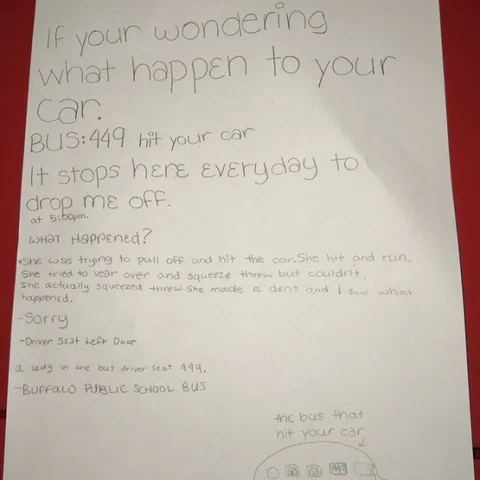 If your wondering
what happen to your
car.
BUS:449 hit your car
It stops here everyday to
drop me off.
at 5:00pm
WHAT HAPPENED?
•She was trying to pull off and hit the car.She hit and run.
She tried to vear over and squeeze threw but couldn't.
She actually squeezed threw.She made a dent and I saw what
happened.
-Sorry
-Driver Seat Left Door
a lady in the bus driver seat 449.
-BUFFALO PUBLIC SCHOOL BUS
the bus that
hit your car